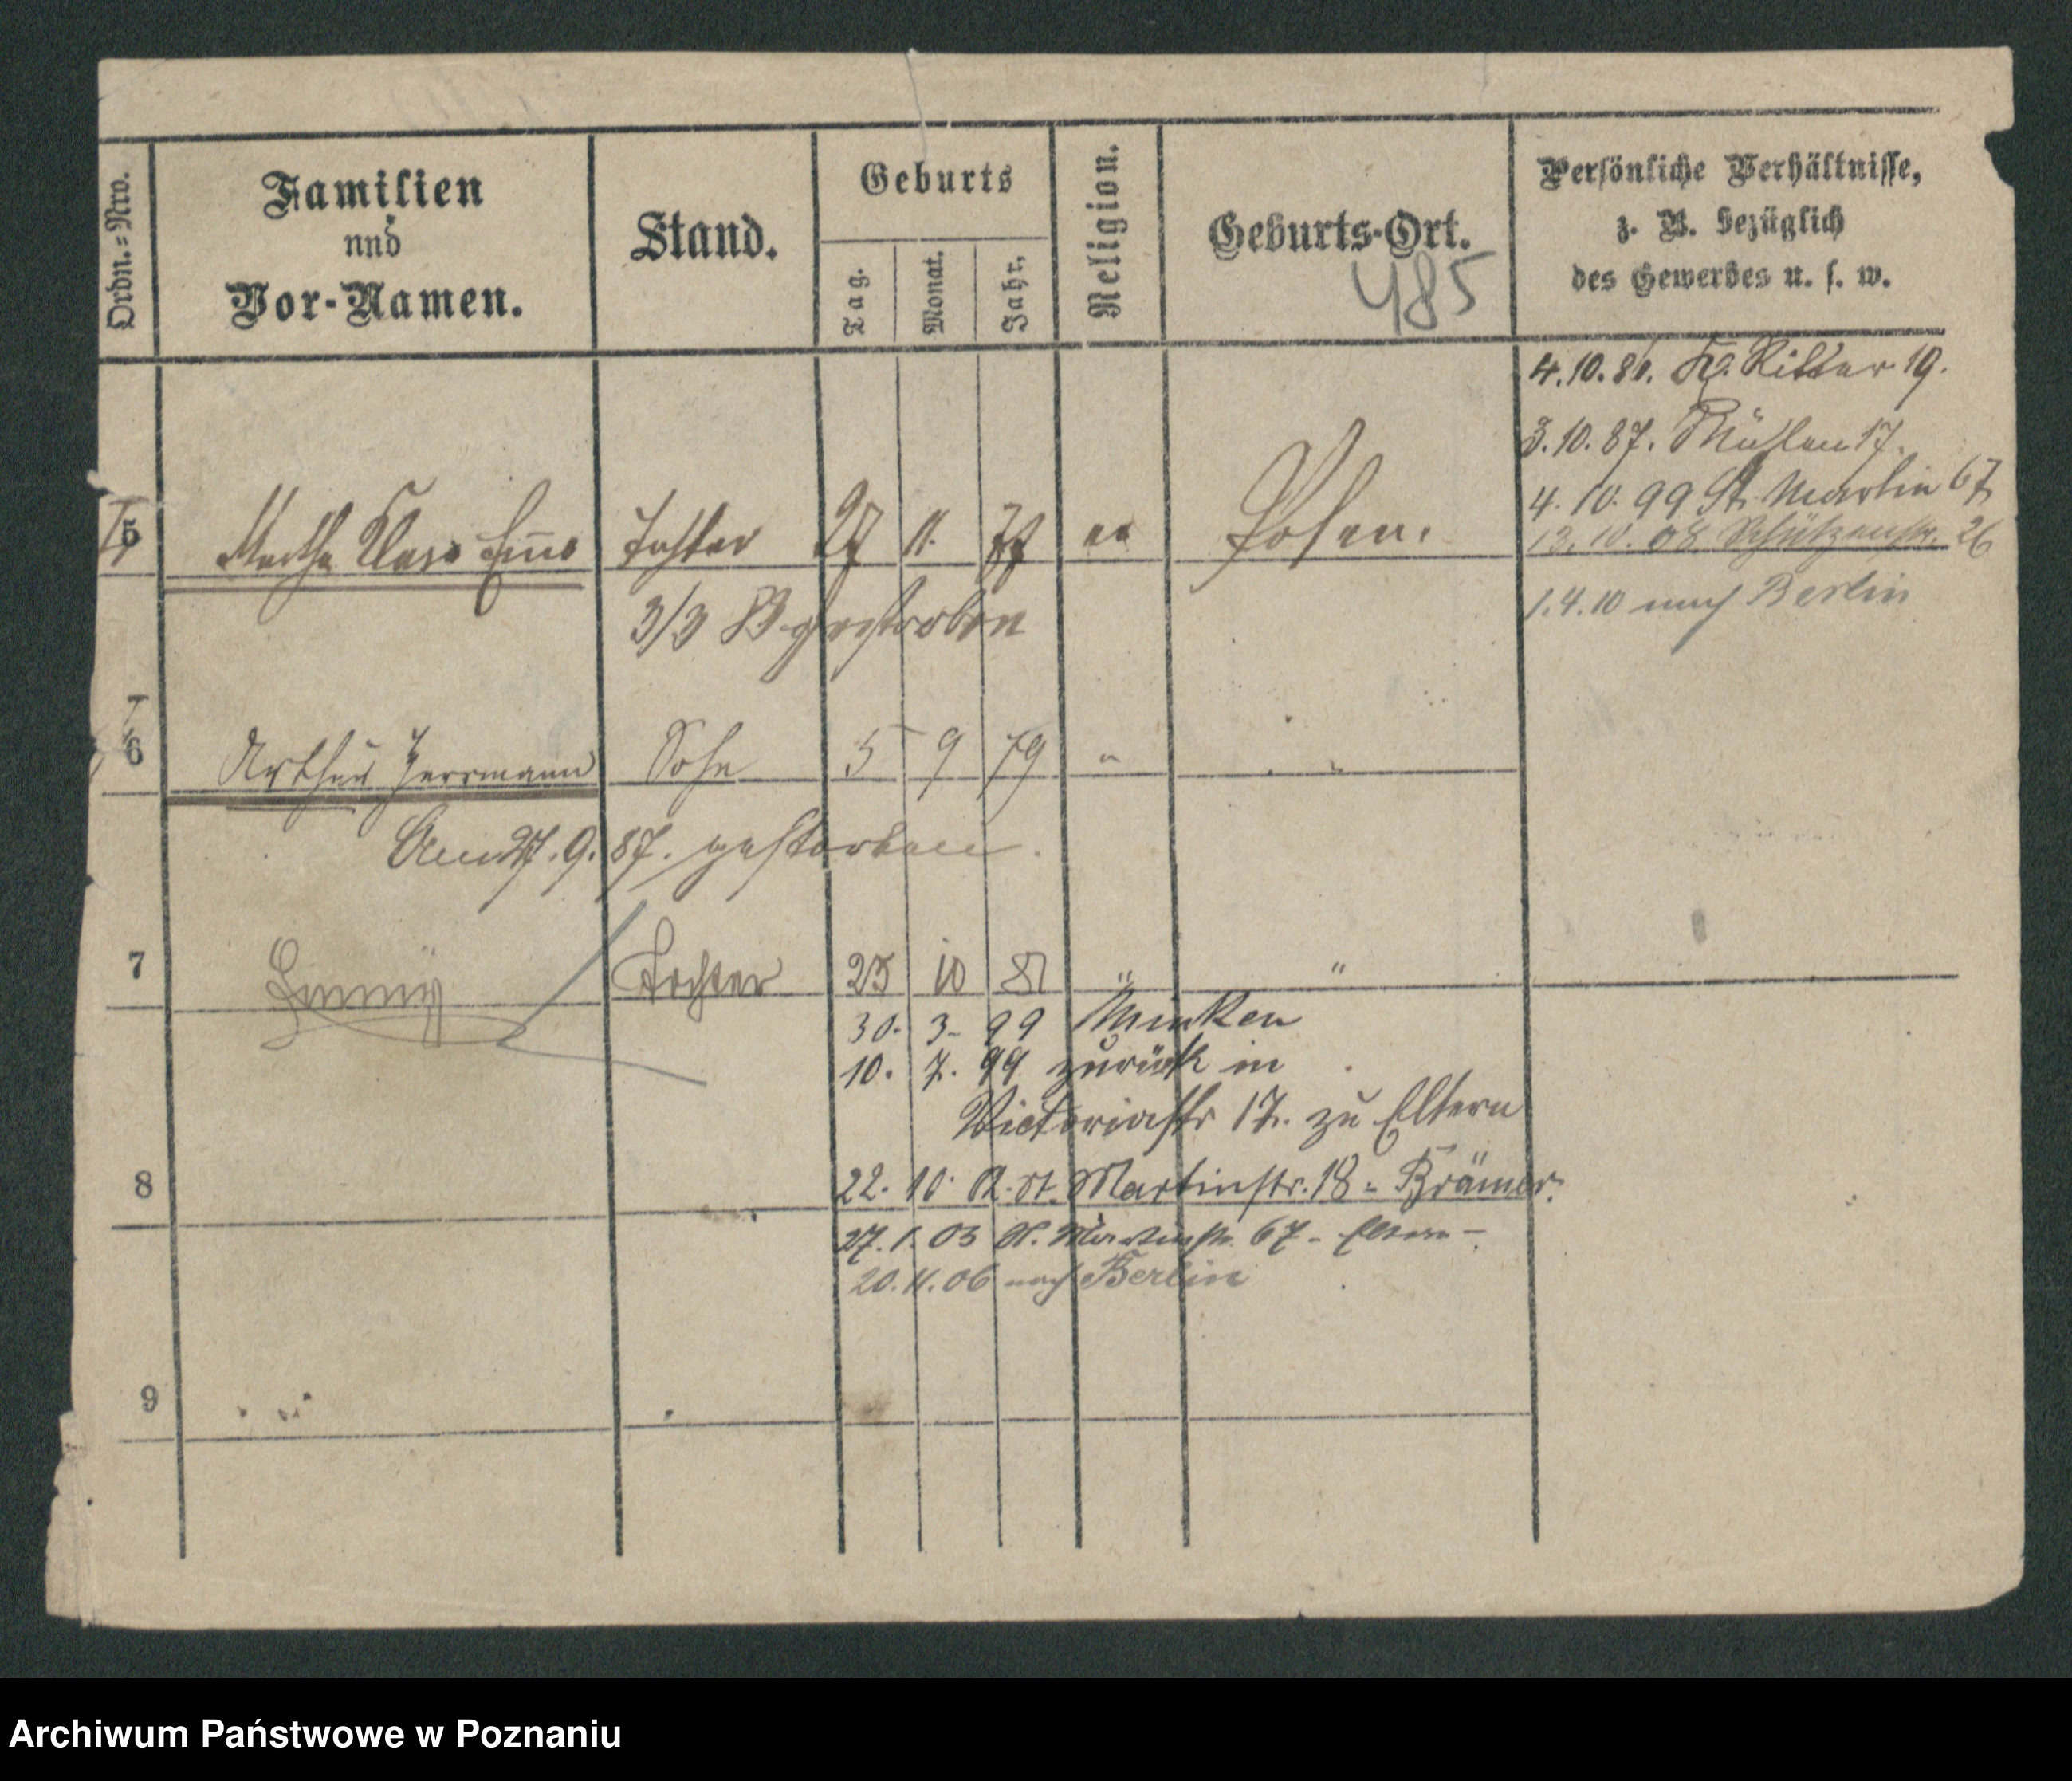 Ordn.=Nro.
Familien
und
Vor-Namen.
Stand.
Geburts
Tag.
Monat.
Jahr.
Religion.
Geburts-Ort.
485
Persönliche Verhältnisse,
z. B. bezüglich
des Gewerbes u. s. w.
4.10.86. Ritter 19.
3.10.87. Mühlen 17.
4.10.99 St. Martin 67
13.10.08 Schützenstr. 26
1.4.10 nach Berlin
5 Martha Clara Tochter 27 11. 77 Posen.
3/3 gestorben
6 Arthur Herrmann Sohn 5 9 79 "
Am 27.9.87. gestorben.
7 Tochter 25 10 81 " "
30. 3. 99
10. 7. 99 zurück in
Victoriastr 17. zu Eltern
8
22. 10. St. Martinstr. 18 - Brämer.
27.1.03 St. Martinstr. 67 - Eltern -
20.11.06 nach Berlin
9
Archiwum Państwowe w Poznaniu